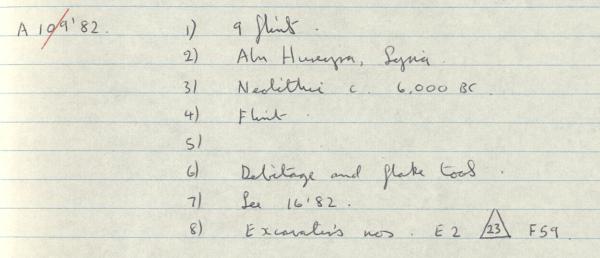 A 109'82. 1) 9 flint.
2) Abu Hureyra, Syria.
3) Neolithic c. 6,000 BC.
4) Flint.
5)
6) Debitage and flake tools.
7) See 16'82.
8) Excavator's nos. E2 23 F59